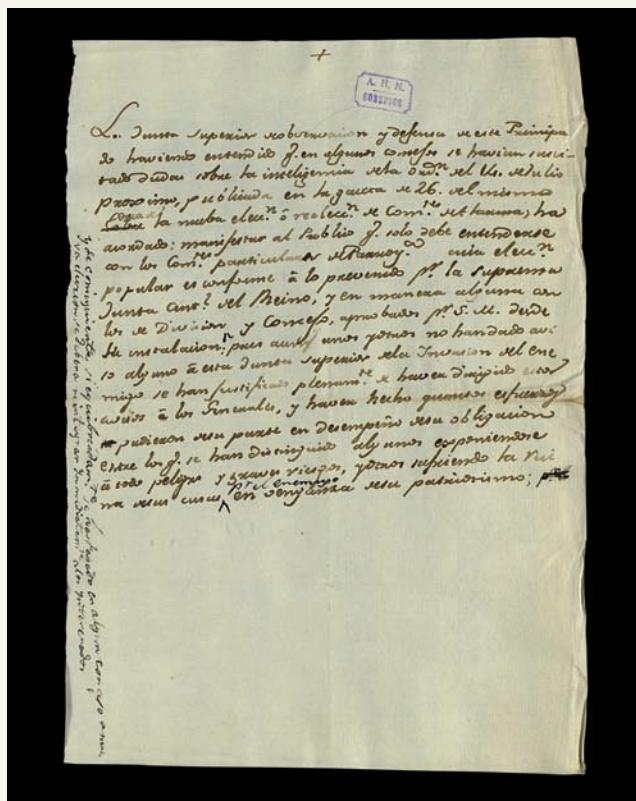 A. H. N.
CONSEJOS
La Junta Superior de observacion y defensa de este Principa
do haviendo entendido q.e en algunos concejos se havian susci-
tado dudas sobre la inteligencia de la ord.n del 14. de Julio
proximo, publicada en la gaceta de 26. del mismo
la nueba elec.n ó reelec.n de Com.tes de Alarma, ha
acordado: manifestar al Publico q.e solo debe entenderse
con los Com.tes particulares de Parroq.as cuia elec.n
popular es conforme á lo prevenido p.r la Suprema
Junta Cent.l del Reino, y en manera alguna con
los de Division y Concejo, aprobados p.r S. M. desde
su instalacion, pues aunq.e unos y otros no han dado avi
so alguno á esta Junta Superior de la Invasion del ene
migo se han justificado plenam.te de haver dirigido estos
avisos á los Generales, y haver hecho quantos esfuerzos
pudieron de su parte en desempeño de su obligacion
entre los q.e se han distinguido algunos esponiendose
á todo peligro y graves riesgos, y otros sufriendo la rui
na de sus casas p.r el enemigo en venganza de su patriotismo;
y de consiguiente, si equibocadam.te se ha pasado en algun concejo a nue
va eleccion se debera reintegrar inmediatam.te a los